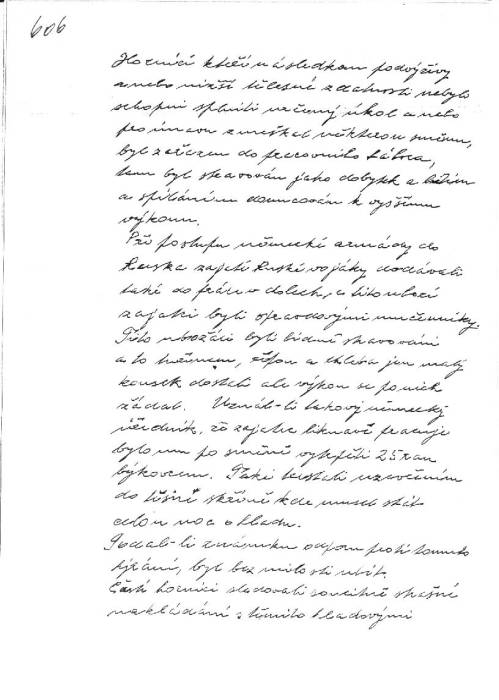 606
Horníci kteří následkem podvýživy
anebo nižší tělesné zdatnosti nebyli
schopni splniti určený úkol anebo
pro únavu zmeškal některou směnu,
byl zařazen do pracovního tábora,
tam byl stravován jako dobytek a bitím
a spíláním donucován k vyššímu
výkonu.
Při postupu německé armády do
Ruska zajatí Ruské vojáky dodávali
také do práce v dolech, a tito ubozí
zajatci byli opravdovými mučenníky.
Tito ubožáci byli bídně stravováni
a to tuřínem, řepou a chleba jen malý
kousek dostali ale výkon se po nich
žádal. Uznal-li takový německý
úředník, že zajatec liknavě pracuje
bylo mu po směně vylepěti 25 ran
býkovcem. Také trestali uzavřením
do těsné skříně kde musel stát
celou noc o hladu.
Podal-li známku odporu proti tomuto
týrání, byl bez milosti ubit.
Čeští horníci sledovali soucitně strašné
nakládání s těmito hladovými